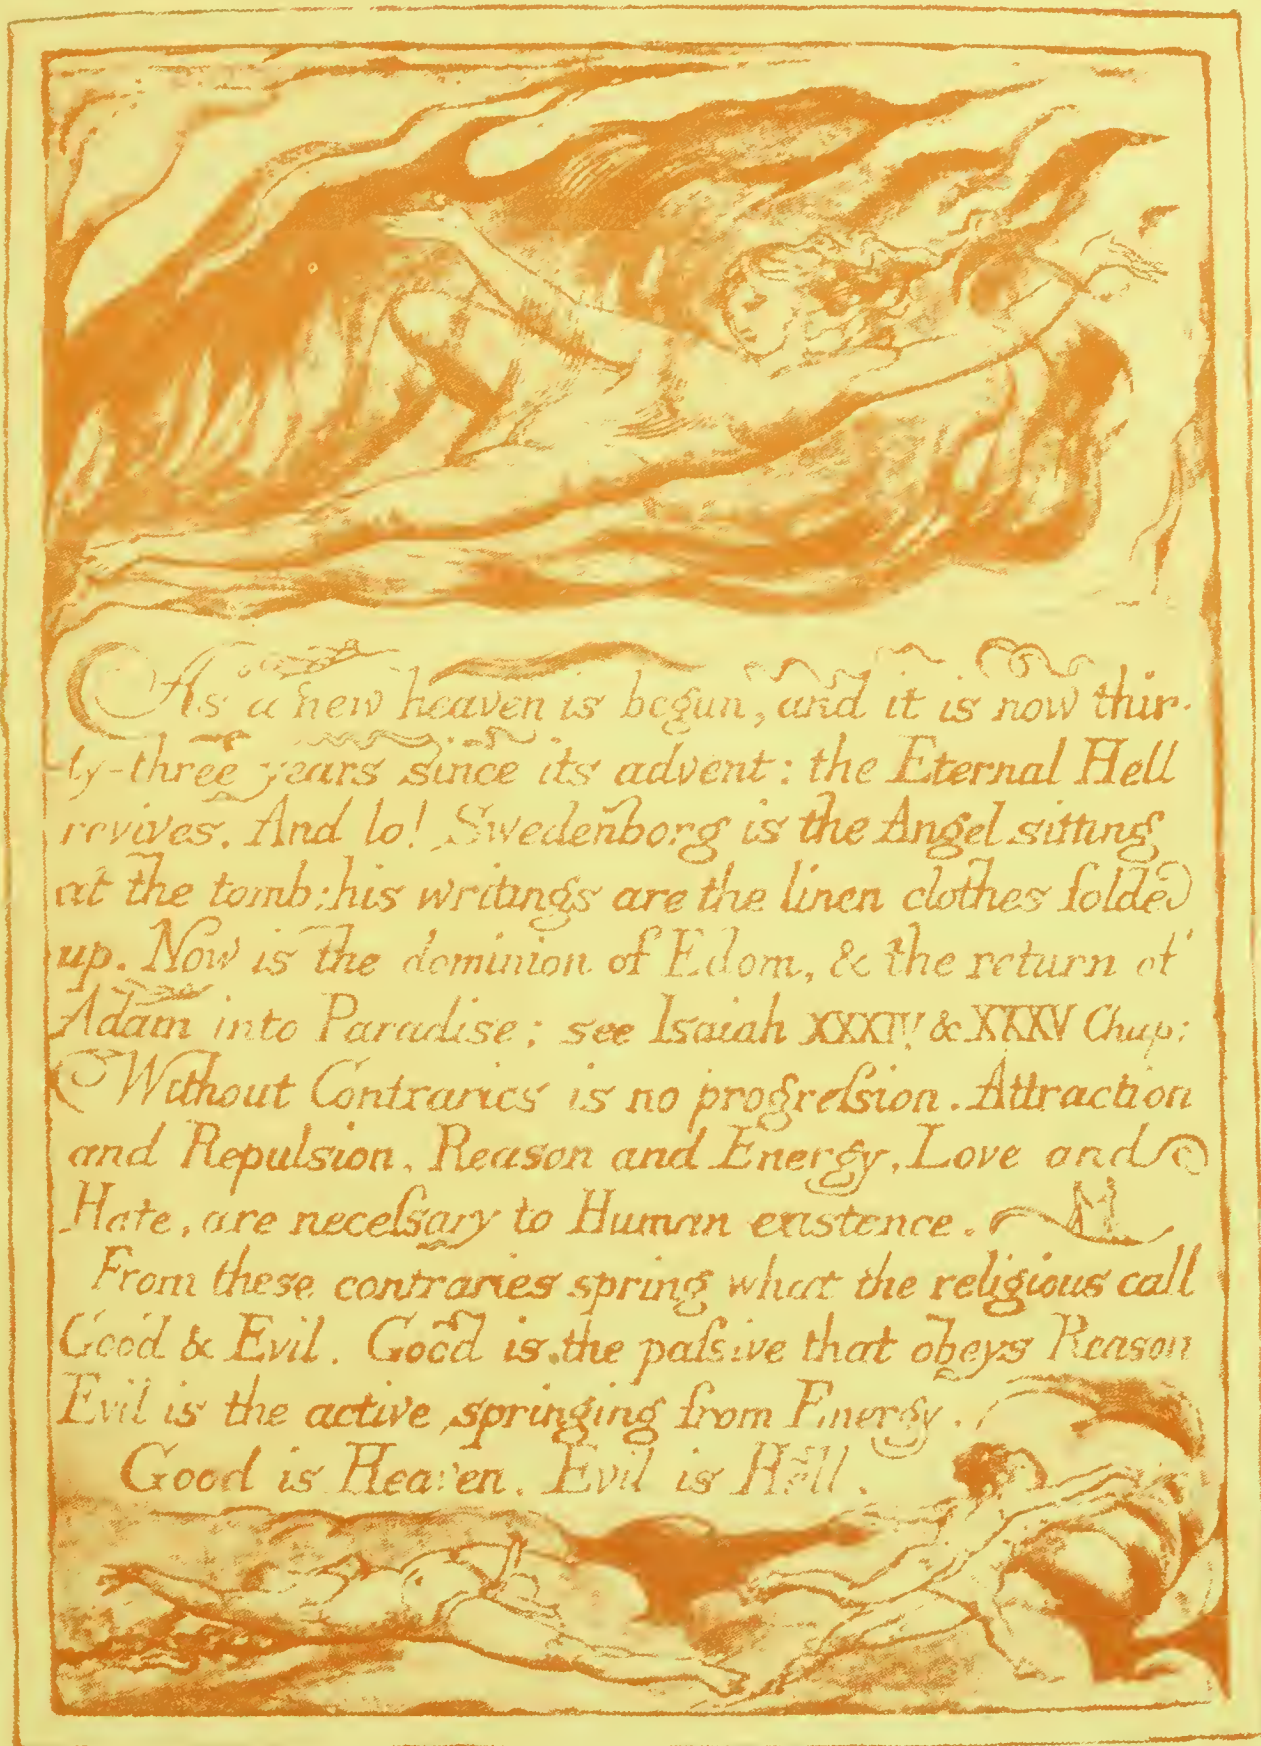 As a new heaven is begun, and it is now thir-
ty-three years since its advent: the Eternal Hell
revives. And lo! Swedenborg is the Angel sitting
at the tomb: his writings are the linen clothes folded
up. Now is the dominion of Edom, & the return of
Adam into Paradise; see Isaiah XXXIV & XXXV Chap:
Without Contraries is no progreſsion. Attraction
and Repulsion, Reason and Energy, Love and
Hate, are neceſsary to Human existence.
From these contraries spring what the religious call
Good & Evil. Good is the paſsive that obeys Reason
Evil is the active springing from Energy.
Good is Heaven. Evil is Hell.